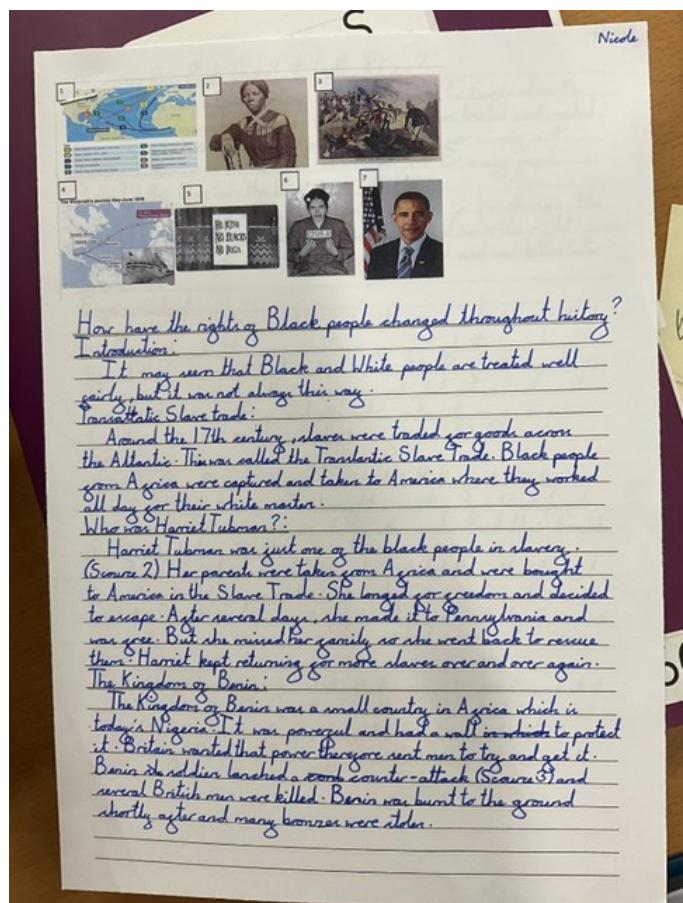 Nicole
1
2
3
4
5
6
7
NO IRISH
NO BLACKS
NO DOGS
How have the rights of Black people changed throughout history?
Introduction:
It may seem that Black and White people are treated well
fairly, but it was not always this way.
Transattatic Slave trade:
Around the 17th century, slaves were traded for goods across
the Altantic. This was called the Translantic Slave Trade. Black people
from Africa were captured and taken to America where they worked
all day for their white master.
Who was Harriet Tubman?:
Harriet Tubman was just one of the black people in slavery.
(Scource 2) Her parents were taken from Africa and were bought
to America in the Slave Trade. She longed for freedom and decided
to escape. After several days, she made it to Pennsylvania and
was free. But she missed her family so she went back to rescue
them. Harriet kept returning for more slaves over and over again.
The Kingdom of Benin:
The Kingdom of Benin was a small country in Africa which is
today's Nigeria. It was powerful and had a wall in which to protect
it. Britain wanted that power therefore sent men to try and get it.
Benin soldiers lanched a counter-attack (Scource 3) and
several British men were killed. Benin was burnt to the ground
shortly after and many bronzes were stolen.